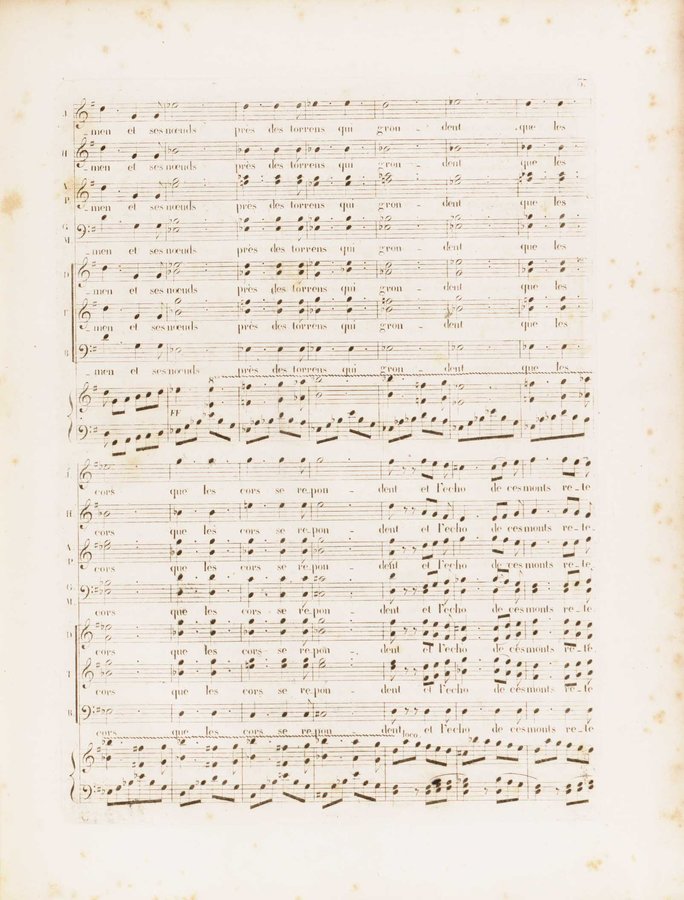 men et ses nœuds près des torrens qui gron - dent que les
H
men et ses nœuds près des torrens qui gron - dent que les
P
men et ses nœuds près des torrens qui gron - dent que les
G
M
men et ses nœuds près des torrens qui gron - dent que les
D
men et ses nœuds près des torrens qui gron - dent que les
men et ses nœuds près des torrens qui gron - dent que les
B
men et ses nœuds près des torrens qui gron - dent que les
8
FF
cors que les cors se repon - dent et l'echo de ces monts re - te
H
cors que les cors se repon - dent et l'echo de ces monts re - te
P
cors que les cors se repon - dent et l'echo de ces monts re - te
G
M
cors que les cors se repon - dent et l'echo de ces monts re - te
D
cors que les cors se repon - dent et l'echo de ces monts re - te
cors que les cors se repon - dent et l'echo de ces monts re - te
B
cors que les cors se repon dent et l'echo de ces monts re - te
loco